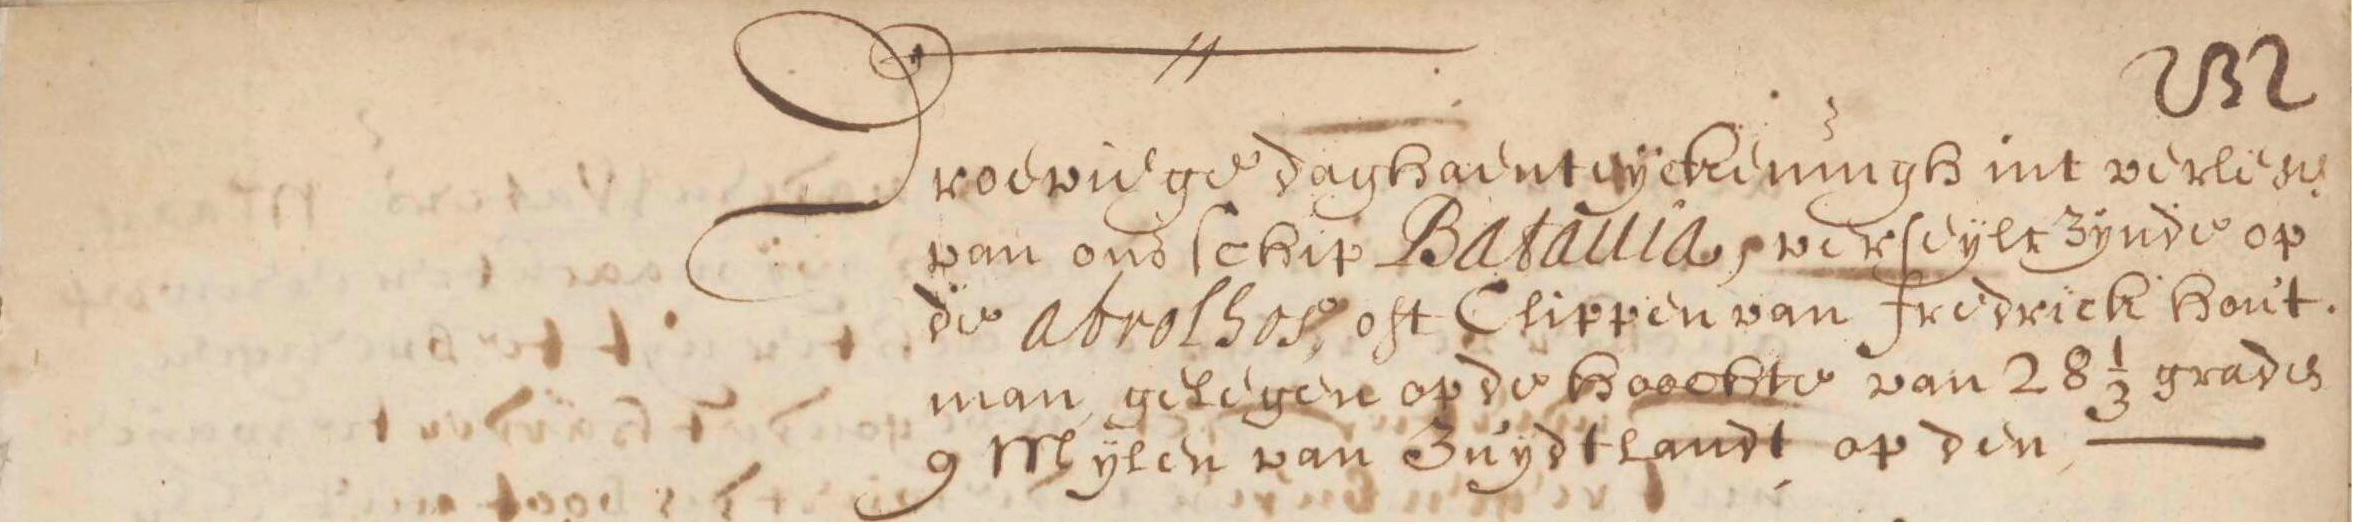 232
Droevige daghaenteijckeningh int verliese
van ons schip Batauia, verseijlt zijnde op
de abrolhos, oft Clippen van fredrick hout.
man, gelegen op de hoochte van 28 1/3 grades
9 Mijlen van Zuijdtlandt op den